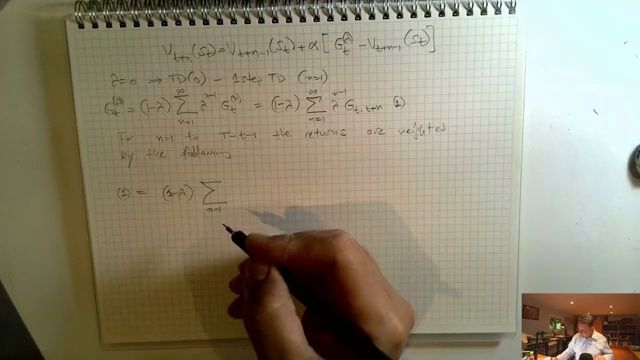 V_{t+n}(S_t) = V_{t+n-1}(S_t) + α [ G_t^λ − V_{t+n-1}(S_t) ]
λ=0 ⇒ TD(0) − 1 step TD (n=1)
G_t^{(λ)} = (1−λ) ∑_{n=1}^{∞} λ^{n-1} G_t^{(n)} = (1−λ) ∑_{n=1}^{∞} λ^{n-1} G_{t,t+n} (1)
For n=1 to T−t−1 the returns are weighted
by the following
(1) = (1−λ) ∑_{n=1}